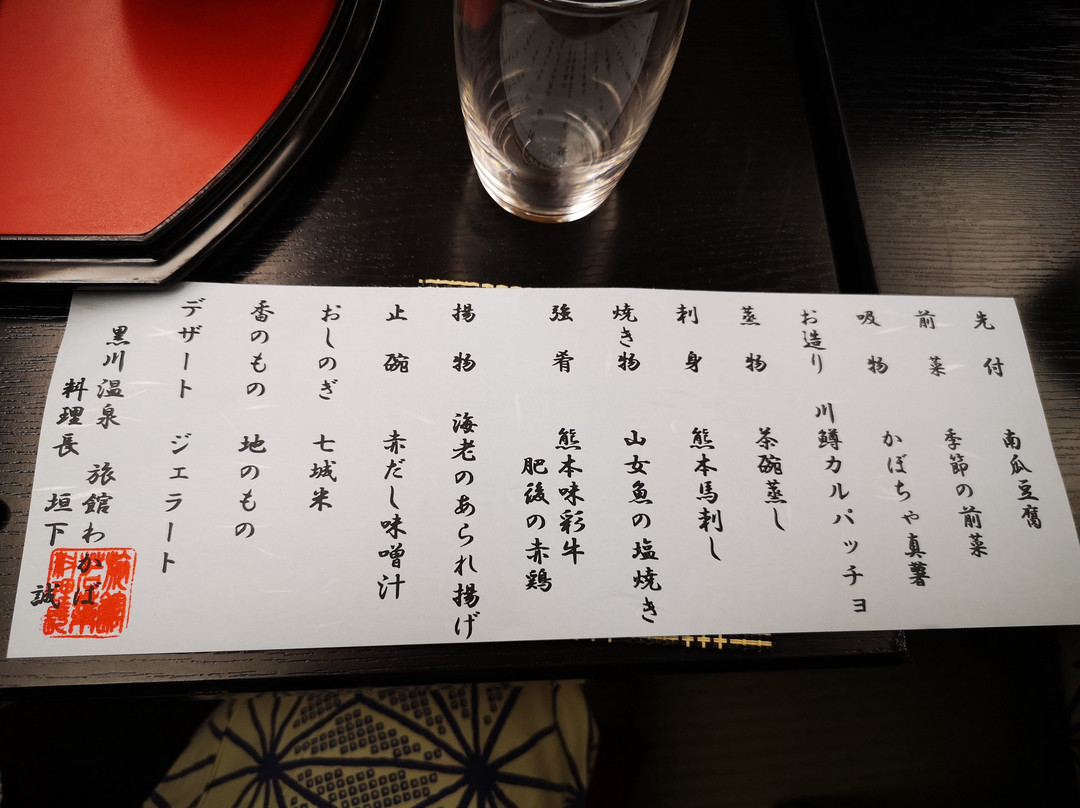 先付 南瓜豆腐
前菜 季節の前菜
吸物 かぼちゃ真薯
お造り 川鱒カルパッチョ
蒸物 茶碗蒸し
刺身 熊本馬刺し
焼き物 山女魚の塩焼き
強肴 熊本味彩牛
肥後の赤鶏
揚物 海老のあられ揚げ
止碗 赤だし味噌汁
おしのぎ 七城米
香のもの 地のもの
デザート ジェラート
黒川温泉 旅館わかば
料理長 垣下 誠